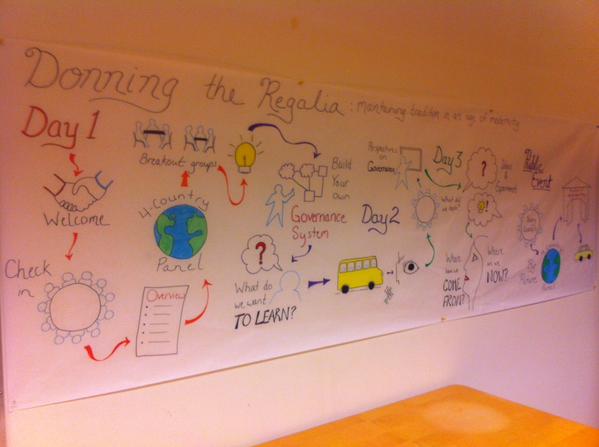 Donning the Regalia: maintaining tradition in an age of modernity
Day 1
Welcome
Check
in
Overview
4-Country
Panel
Breakout groups
Build
Your
Own
Governance
System
Day 2
?
What do
we want
TO LEARN?
Perspectives
on
Governance
Day 3
What do
we
?
!
Where
have we
COME
FROM?
Where
are we
NOW?
Public
Event